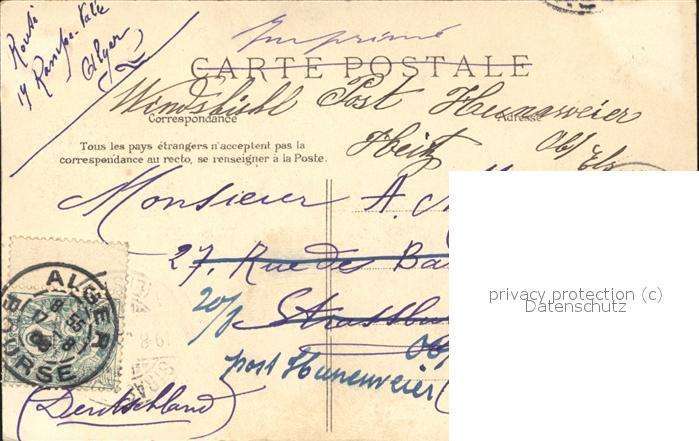 Routé
17 Rampe Valée
Alger
Imprimé
CARTE POSTALE
Windsbühl Post Hunaweier
Correspondance
Adresse
Tous les pays étrangers n'acceptent pas la
correspondance au recto, se renseigner à la Poste.
Ob/ Els
Monsieur A.
27, Rue des
20/
Strassbu
post Hunaweier
(Deutschland)
ALGER
BOURSE
privacy protection (c)
Datenschutz